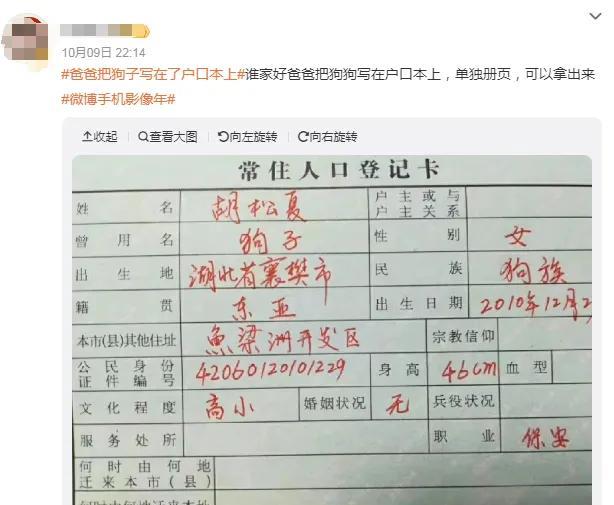 10月09日 22:14
#爸爸把狗子写在了户口本上#谁家好爸爸把狗狗写在户口本上，单独册页，可以拿出来
#微博手机影像年#
收起 查看大图 向左旋转 向右旋转
常住人口登记卡
姓名 胡松夏 户主或与户主关系
曾用名 狗子 性别 女
出生地 湖北省襄樊市 民族 狗族
籍贯 东亚 出生日期 2010年12月2
本市(县)其他住址 鱼梁洲开发区 宗教信仰
公民身份证件编号 42060120101229 身高 46cm 血型
文化程度 高小 婚姻状况 无 兵役状况
服务处所 职业 保安
何时由何地迁来本市(县)
何时由何地迁来本址